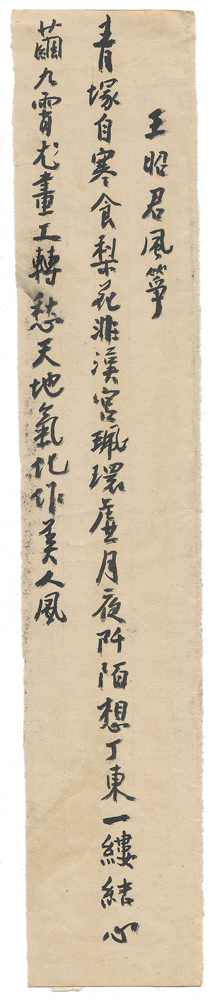 王昭君風箏
青塚自寒食梨花非漢宮珮環虛月夜阡陌想丁東一縷結心
繭九霄尤畫工轉愁天地氣化作美人風